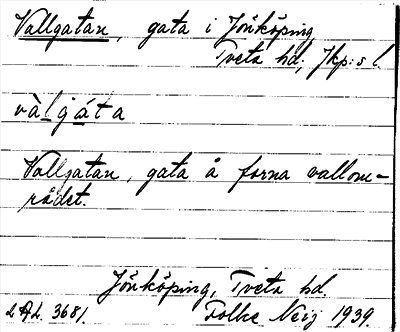 Vallgatan, gata i Jönköping
Tveta hd, Jkp:s l.
vàlgáta
Vallgatan, gata å forna vallom-
rådet.
Jönköping, Tveta hd.
LAL 3681. Folke Neij 1939.